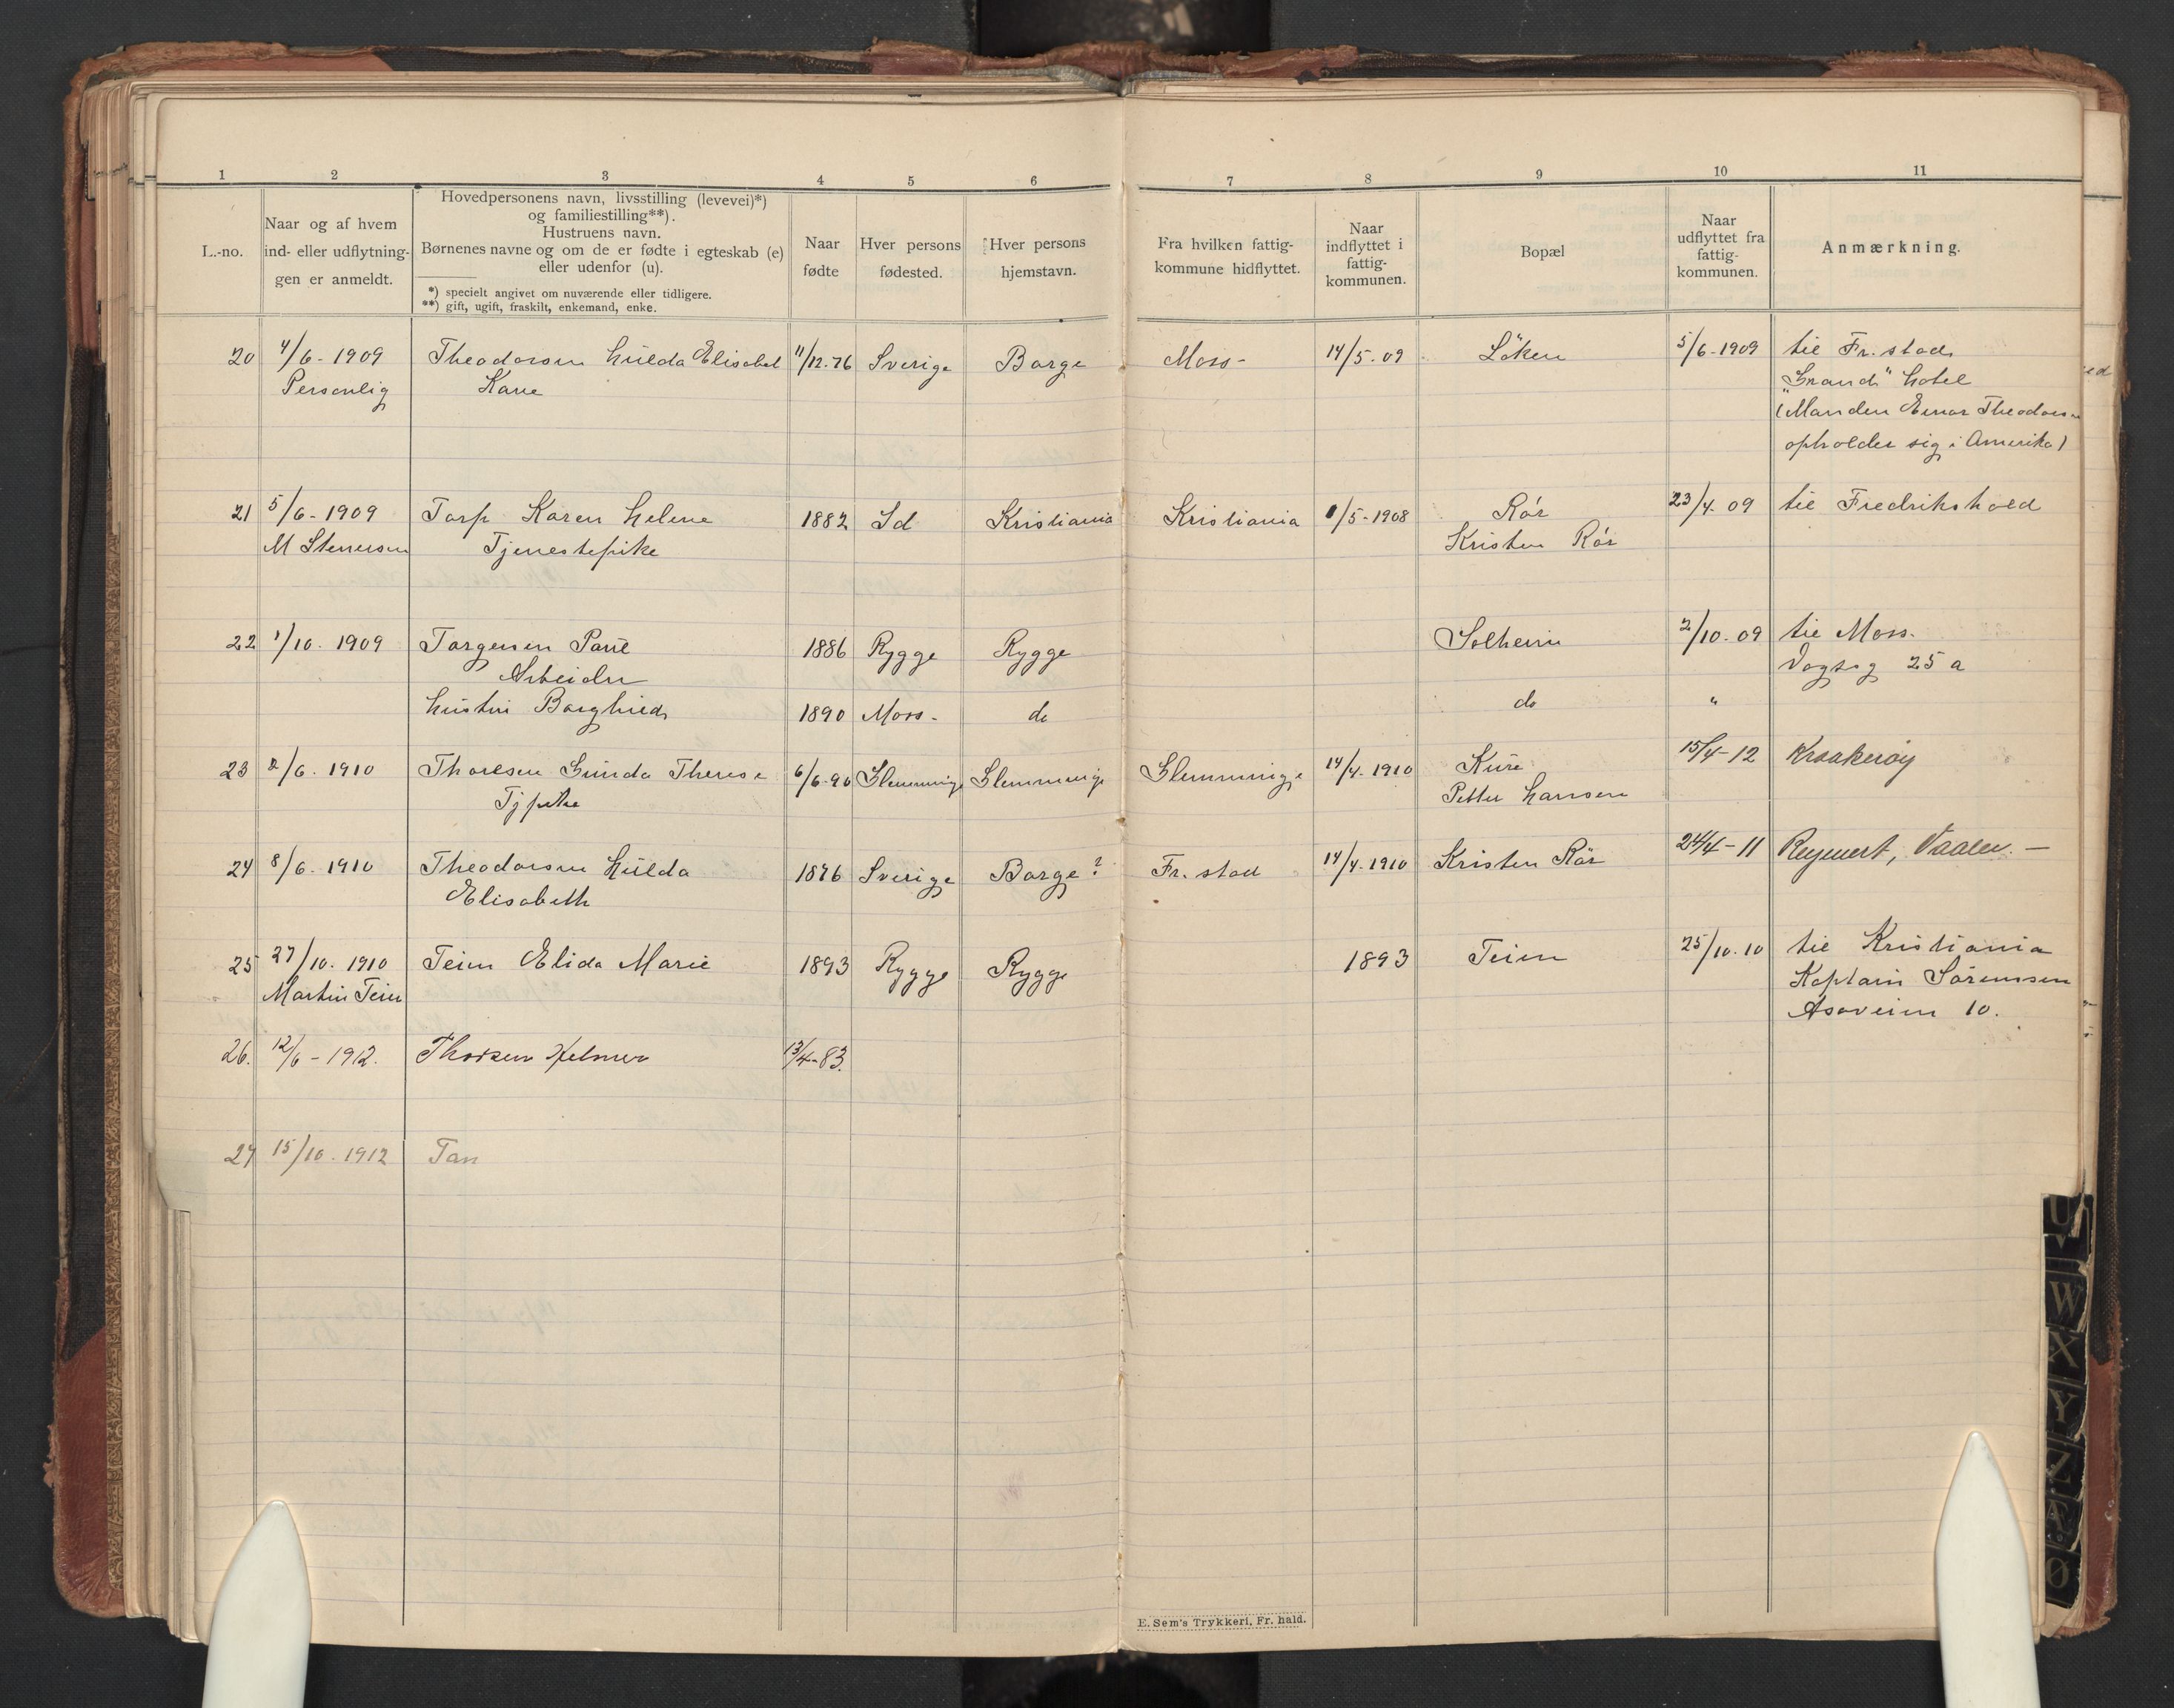 1 2 3 4 5 6 7 8 9 10 11
L.-no.
Naar og af hvem
ind- eller udflytnin-
gen er anmeldt.
Hovedpersonens navn, livsstilling (levevei)*)
og familiestilling**).
Hustruens navn.
Børnenes navne og om de er fødte i egteskab (e)
eller udenfor (u).
*) specielt angivet om nuværende eller tidligere.
**) gift, ugift, fraskilt, enkemand, enke.
Naar
fødte
Hver persons
fødested.
Hver persons
hjemstavn.
Fra hvilken fattig-
kommune hidflyttet.
Naar
indflyttet i
fattig-
kommunen.
Bopæl
Naar
udflyttet fra
fattig-
kommunen.
Anmærkning.
20 4/6 - 1909 Theodorsen Hulda Elisabet 11/12.76 Sverige Borge Moss - 14/5.09 Löken 5/6-1909 til Fr. stad
Personlig Kone "Grand" Hotel
(Manden Einar Theodorsen
opholder sig i Amerika)
21 5/6 - 1909 Torp Karen Helene 1882 Id Kristiania Kristiania 1/5-1908 Rör 23/4.09 til Fredrikshald
M Stenersen Tjenestepike Kristen Rör
22 1/10. 1909 Torgersen Paul 1886 Rygge Rygge Solheim 2/10.09 til Moss.
Arbeider Vogtsg 25 a
Hustru Borghild 1890 Moss - do do "
23 2/6. 1910 Thoresen Gunda Therese 6/6-90 Glemminge Glemminge Glemminge 14/4-1910 Kure 15/4-12 Kraakerøy
Tjpike Petter Hansen
24 8/6. 1910 Theodorsen Hulda 1876 Sverige Borge? Fr. stad 14/4-1910 Kristen Rör 24/4-11 Reynert, Vaaler. -
Elisabeth
25 27/10. 1910 Teien Elida Marie 1893 Rygge Rygge 1893 Teien 25/10.10 til Kristiania
Martin Teien Kaptain Sörenssen
Asoveien 10.
26. 12/6 - 1912. Thorsen Helmer 13/4-83.
27 15/10. 1912 Tan
E. Sem's Trykkeri, Fr. hald.
U
V
W
X
Y
Z
Ø